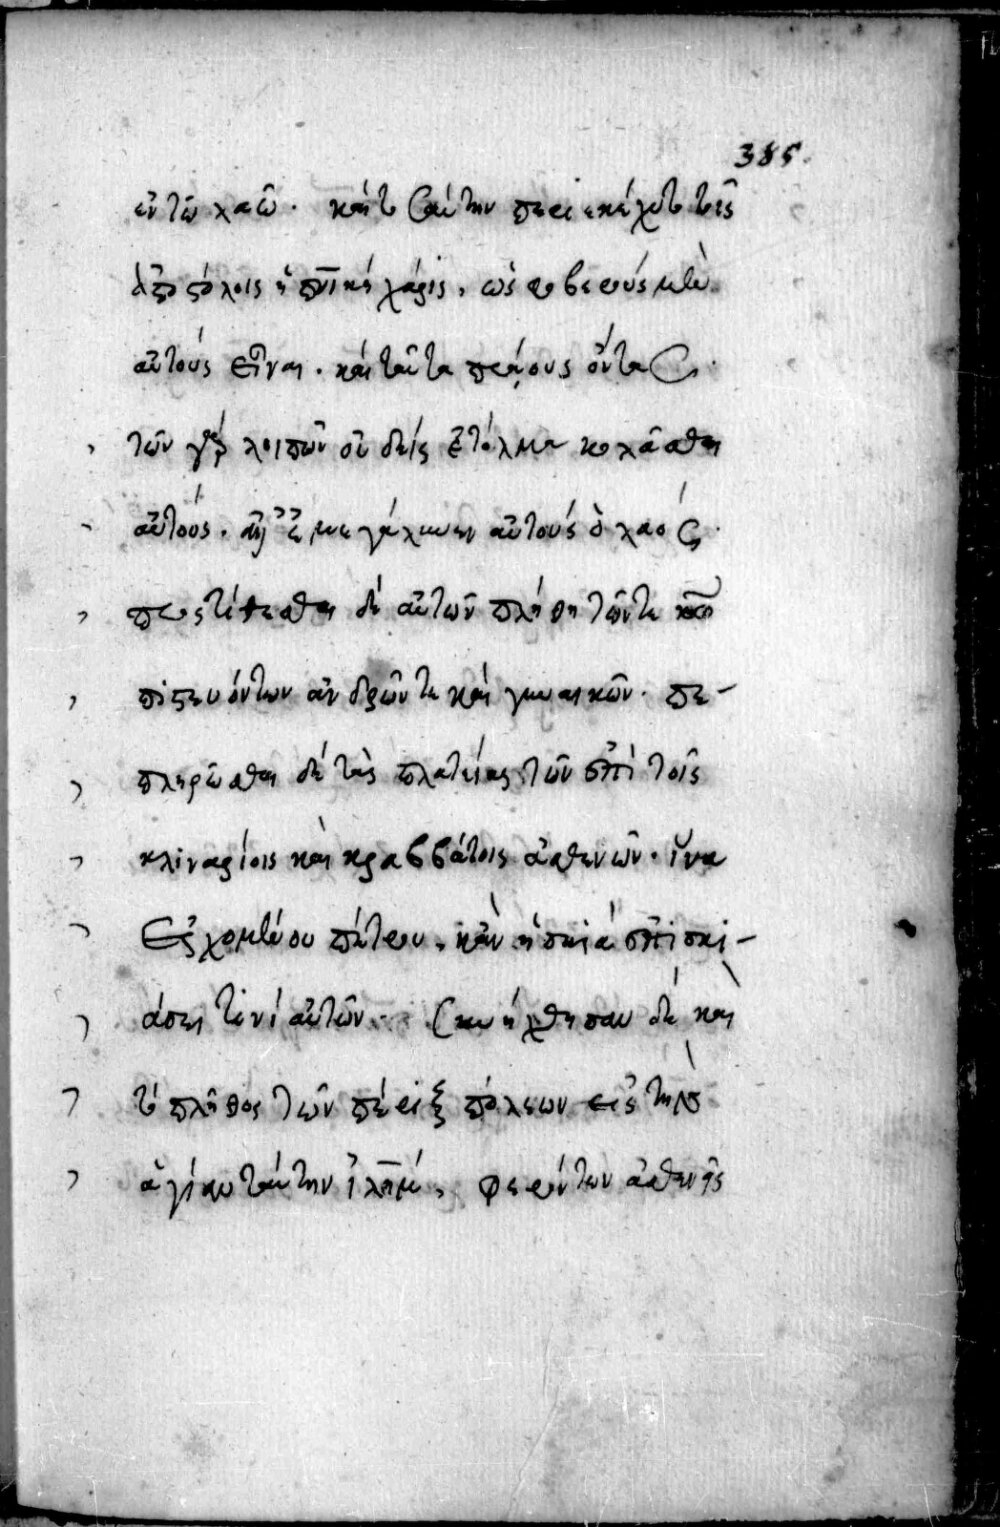 385.
ἐν τῶ λαῶ. καὶ τοσαύτην περιεκέχυτο τοῖς
ἀποστόλοις ἡ πνικὴ χάρις, ὡς φοβεροὺς μὲν
αὐτοὺς εἶναι. καὶ ταῦτα πράους ὄντας.
τῶν γὰρ λοιπῶν οὐδεὶς ἐτόλμα κολλᾶσθαι
αὐτοῖς. ἀλλ' ἐμεγάλυνεν αὐτοὺς ὁ λαός.
προστίθεσθαι δὲ αὐτῶν πλήθη τῶν τε
πιστευόντων ἀνδρῶν τε καὶ γυναικῶν. πε-
πληρῶσθαι δὲ τὰς πλατείας τῶν ἐπὶ τοῖς
κλιναρίοις καὶ κραββάτοις ἀσθενῶν. ἵνα
ἐρχομένου πέτρου, κἂν ἡ σκιὰ ἐπισκι-
άσει τινὶ αὐτῶν. συνήχθησαν δὲ καὶ
τὸ πλῆθος τῶν πέριξ πόλεων εἰς τὴν
ἁγίαν ταύτην ἰλημ, φερόντων ἀσθενεῖς